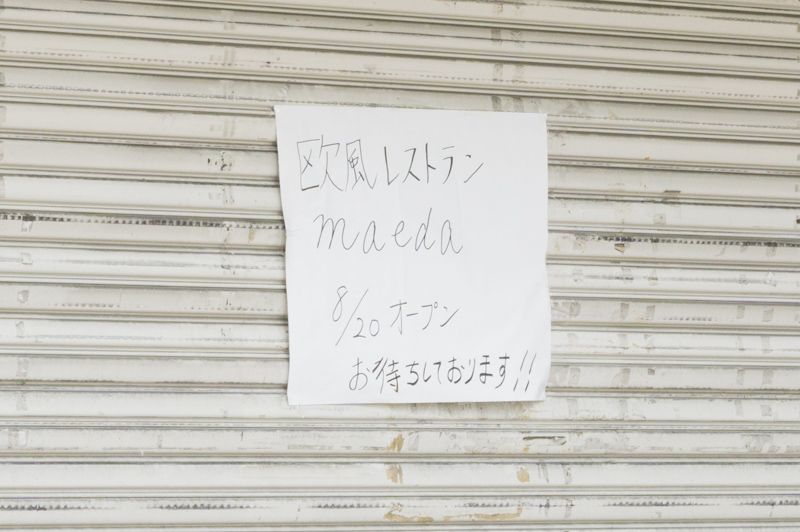 欧風レストラン
maeda
8/20 オープン
お待ちしております!!